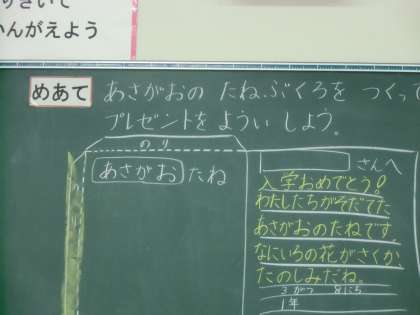 いて
かんがえよう
めあて
あさがおの たねぶくろを つくって
プレゼントを ようい しよう。
のり
あさがお たね
さんへ
入学おめでとう!
わたしたちがそだてた
あさがおのたねです。
なにいろの花がさくか、
たのしみだね。
3がつ 8にち
1年